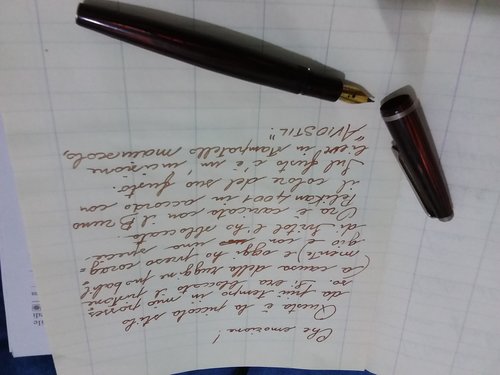 Che emozione!
Questa è la piccola stilo
da più tempo in mio posses
so. Si era bloccato il pistone
(a causa della ruggine probabil
mente) e oggi ho preso corag=
gio e con una specie
di Svitol l'ho sbloccata.
Ora è caricata con il Bruno
Pelikan 4001 in accordo con
il colore del suo fusto.
Sul fusto c'è un' incisione
lieve in stampatello maiuscolo,
"AVIOSTIL".